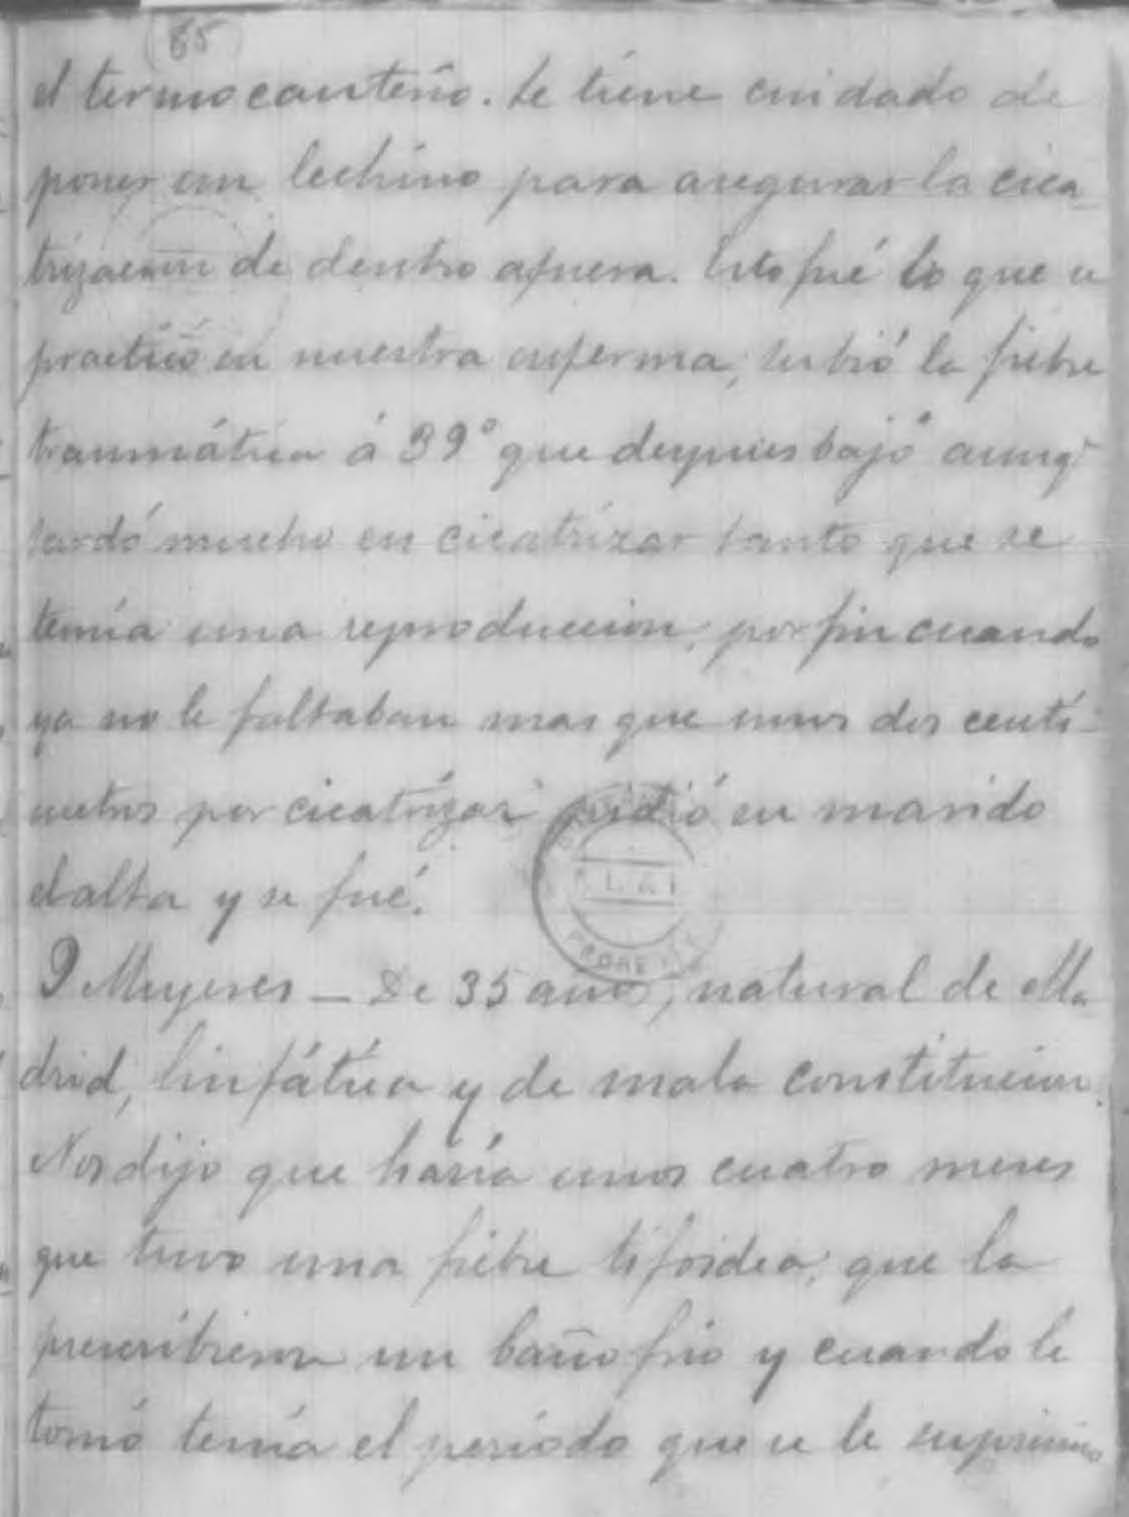 85
el termocauterio. Se tiene cuidado de
poner un lechino para asegurar la cica
trización de dentro afuera. Esto fué lo que se
practicó en nuestra enferma, subió la fiebre
traumática á 39° que despues bajó aunq.
tardó mucho en cicatrizar tanto que se
temía una reproduccion, por fin cuando
ya no le faltaban mas que unos dos centi-
metros por cicatrizar pidió su marido
el alta y se fué.
9 Mujeres — De 35 años, natural de Ma
drid, linfática y de mala constitucion.
Nos dijo que haría unos cuatro meses
que tuvo una fiebre tifoidea, que la
prescribieron un baño frio y cuando le
tomó tenía el período que se le suprimió